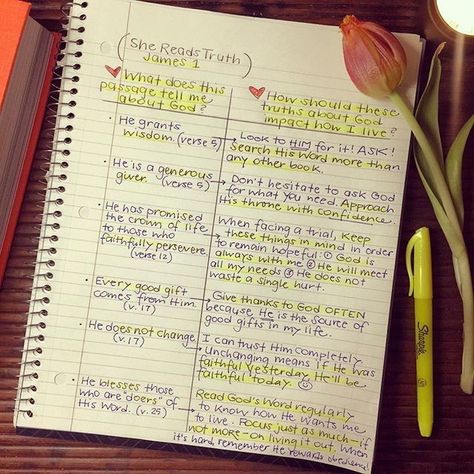 (She Reads Truth
James 1)
What does this
passage tell me
about God?
• He grants
wisdom. (verse 5)
• He is a generous
giver. (verse 5)
• He has promised
the crown of life
to those who
faithfully persevere.
(verse 12)
• Every good gift
comes from Him.
(v. 17)
• He does not change.
(v. 17)
• He blesses those
who are "doers" of
His Word. (v. 25)
How should these
truths about God
impact how I live?
Look to HIM for it! ASK!
Search His Word more than
any other book.
Don't hesitate to ask God
for what you need. Approach
His throne with confidence.
When facing a trial, keep
these things in mind in order
to remain hopeful: ① God is
always with me ② He will meet
all my needs ③ He does not
waste a single hurt.
Give thanks to God OFTEN
because He is the source of
good gifts in my life.
I can trust Him completely.
Unchanging means if He was
faithful yesterday He'll be
faithful today.
Read God's Word regularly
to know how He wants me
to live. Focus just as much—if
not more—on living it out. When
it's hard, remember He rewards obedience.
Sharpie